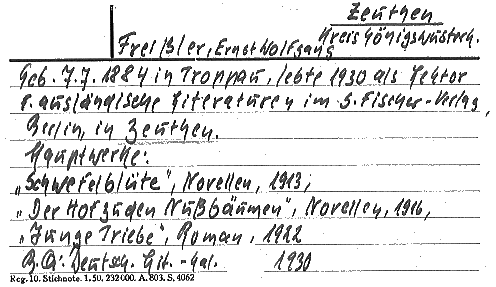 Zeuthen
Kreis Königswusterh.
Freißler, Ernst Wolfgang
Geb. 7.7. 1884 in Troppau, lebte 1930 als Lektor
f. ausländische Literaturen im S. Fischer-Verlag,
Berlin, in Zeuthen.
Hauptwerke:
„Schwefelblüte", Novellen, 1913;
„Der Hof zu den Nußbäumen", Novellen, 1916,
„Junge Triebe", Roman, 1922
B.Q: Deutsch. Lit.-Kal. 1930
Reg. 10. Stichnote. 1. 50. 232000. A. 803. S. 4062